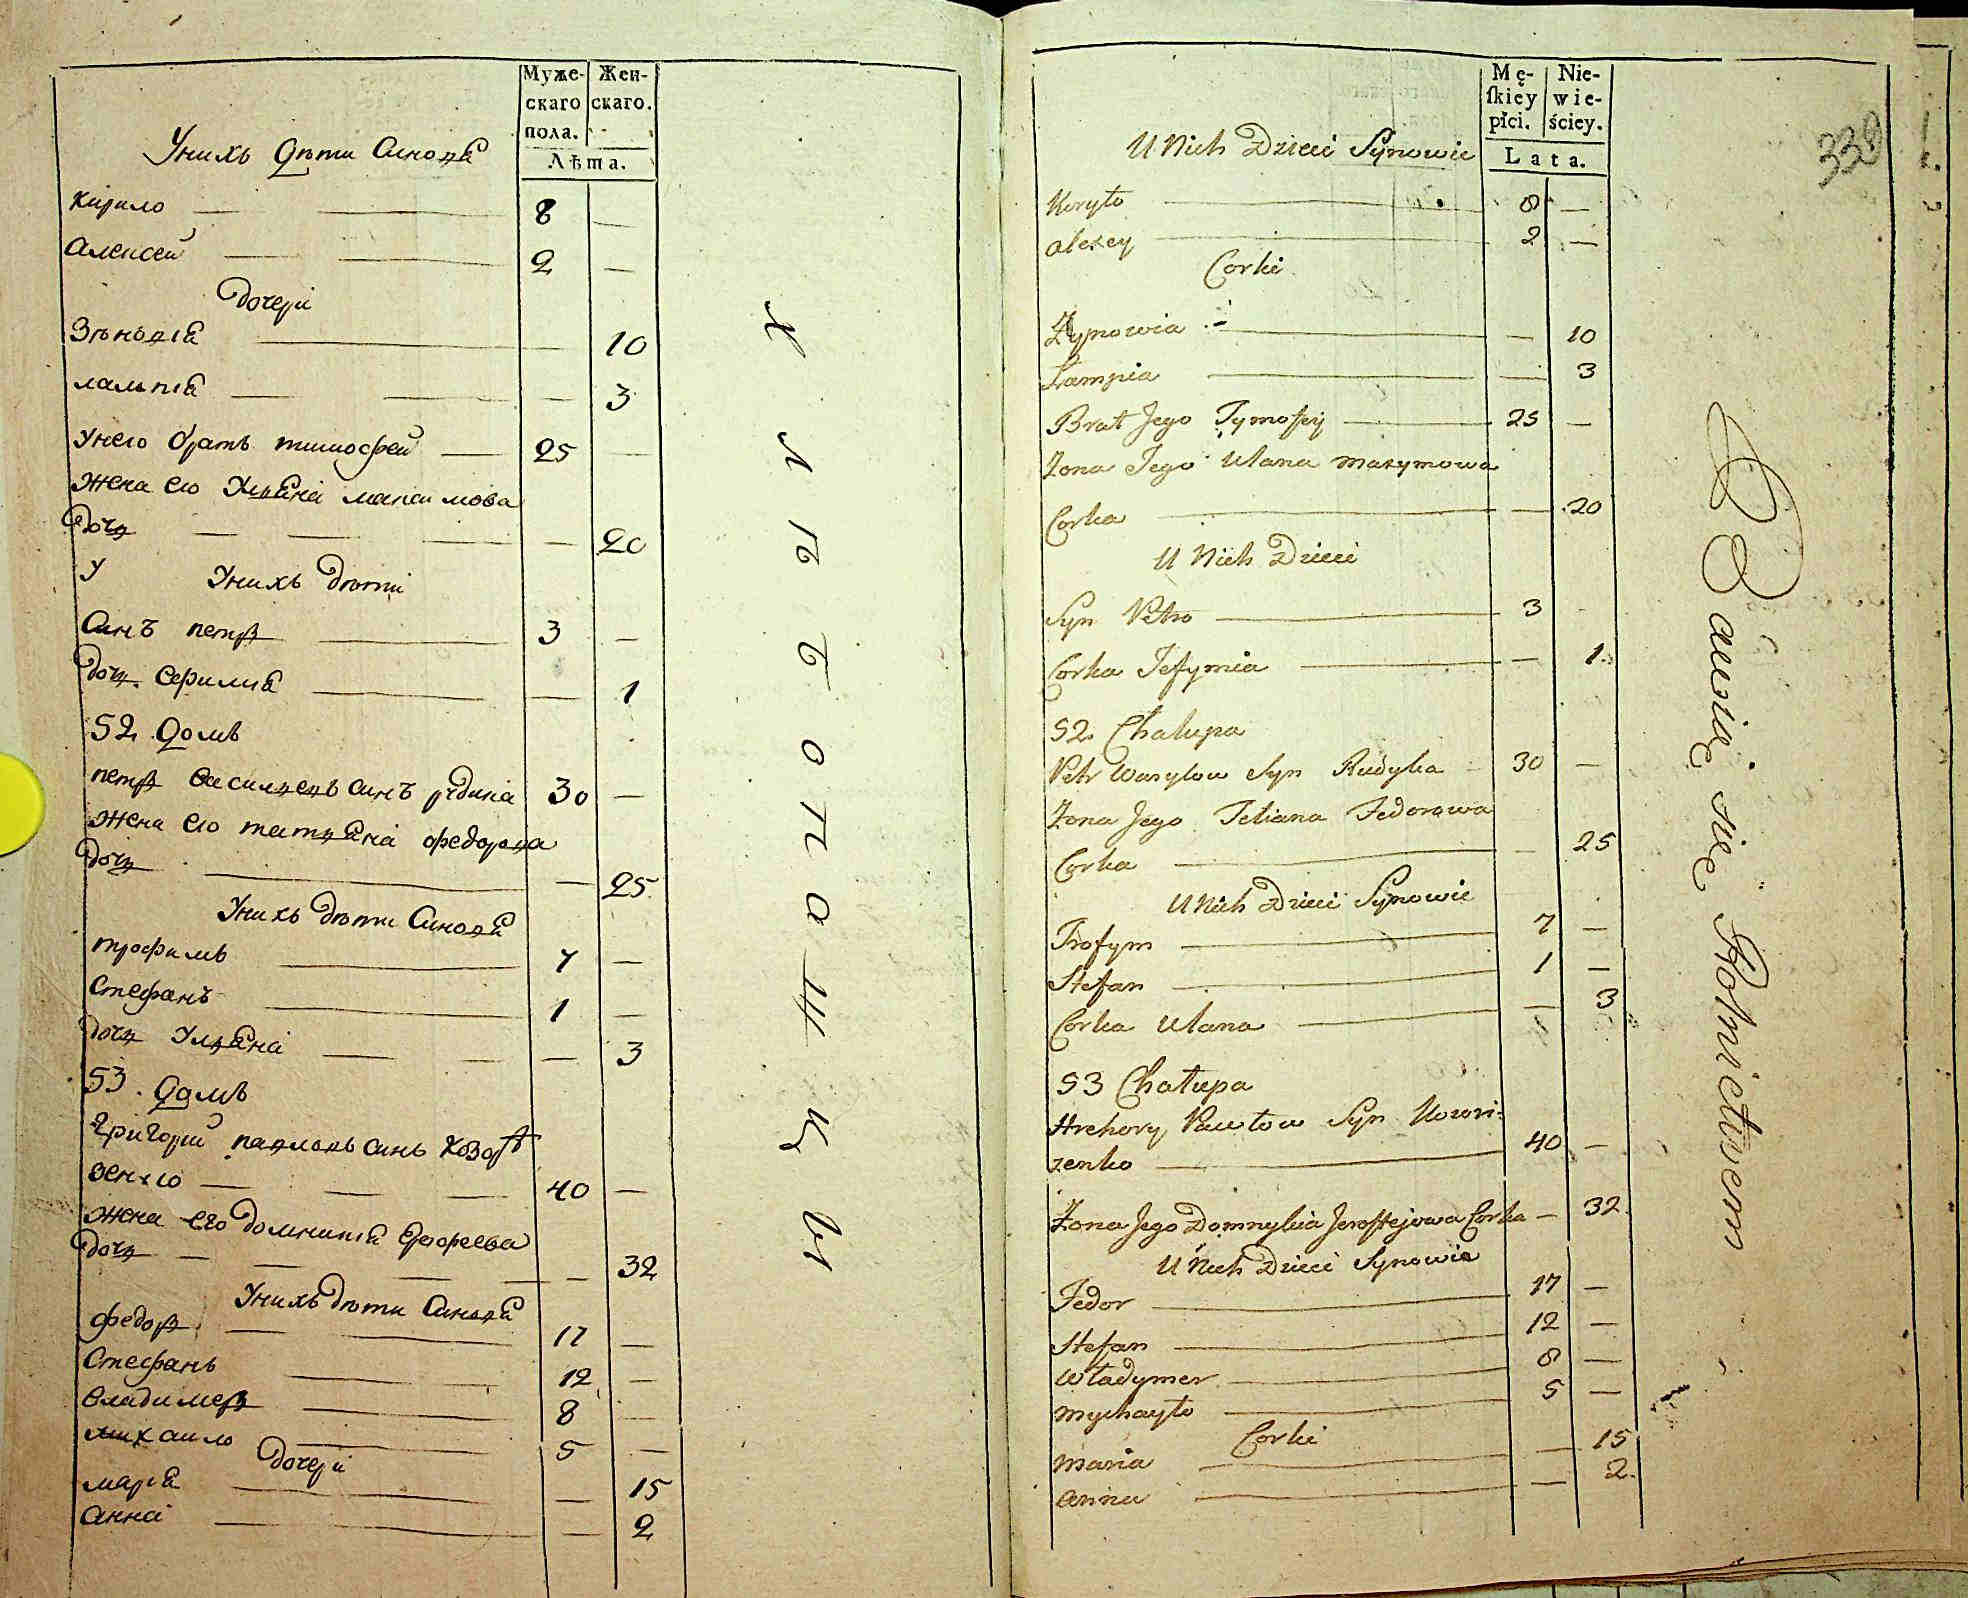 Муже-
скаго
пола.
Жен-
скаго.
Лѣта.
Унихъ Дѣти Синовя
Кирило 8 —
Алексеи 2 —
Дочери
Зѣновія — 10
лампія — 3
Унего братъ тимофеи 25 —
Жена его Уляна максимова
Дочь — 20
У Унихъ дѣти
Синъ петръ 3 —
Дочь — 1
52 Домъ
петръ василевъ синъ рудика 30 —
Жена его татяна федорова
Дочь — 25
Унихъ дѣти Синовя
трофимъ 7 —
Стефанъ 1 —
Дочь Уляна — 3
53. Домъ
Григорій павловъ синъ
40 —
Жена его домникія
Дочь — 32
Унихъ дѣти Синовя
федоръ 17 —
Стефанъ 12 —
Владимеръ 8 —
михаило 5 —
Дочери
марія — 15
анна — 2
Хлѣбопашцы
Mę-
ſkiey
płci.
Nie-
wie-
ściey.
Lata.
339
U Nich Dzieci Synowie
Kyryło 8 —
Alexey 2 —
Corki
Zynowia — 10
Łampia — 3
Brat Jego Tymofiy 25 —
Zona Jego Ulana Maxymowa
Corka — 20
U Nich Dzieci
Syn Petro 3
Corka Jefymia — 1
52 Chałupa
Petr Wasylow Syn Rudyka 30 —
Zona Jego Tetiana Fedorowa
Corka — 25
U Nich Dzieci Synowie
Trofym 7 —
Stefan 1 —
Corka Ulana — 3
53 Chałupa
Hrehory Pawłow Syn
40 —
Zona Jego Domnykia Jerofiejowa Corka — 32
U Nich Dzieci Synowie
Fedor 17 —
Stefan 12 —
Władymer 8 —
Mychayło 5 —
Corki
Maria — 15
Anna — 2
Bawią się Rolnictwem